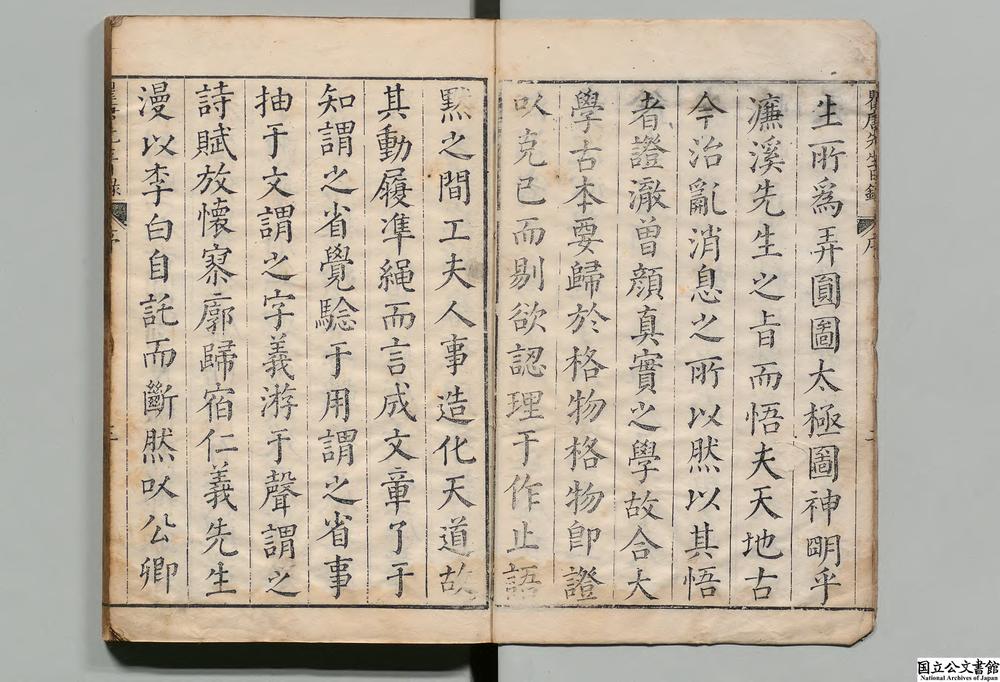 生所爲弄圓圖太極圖神明乎
濂溪先生之旨而悟夫天地古
今治亂消息之所以然以其悟
者證澈曾顔真實之學故合大
學古本要歸於格物格物卽證
以克己而剔欲認理于作止語
黙之間工夫人事造化天道故
其動履準繩而言成文章了于
知謂之省覺驗于用謂之省事
抽于文謂之字義游于聲謂之
詩賦放懷寥廓歸宿仁義先生
漫以李白自託而斷然以公卿
国立公文書館
National Archives of Japan